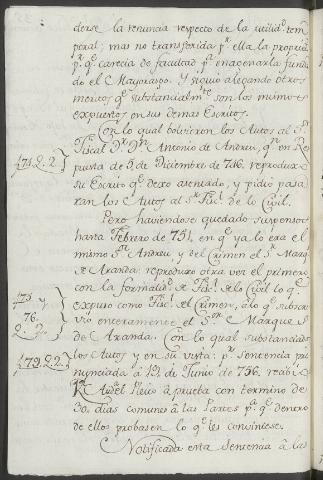 derse la renuncia respecto de la utilid.d tem
poral; mas no transferida p.r ella la propied.d
p.r q.e carecia de facultad p.a enagenarla funda
do el Mayorasgo. Y siguió alegando otros
meritos q.e substancialm.te son los mismos
expuestos en sus demas Escritos.
Con lo qual bolvieron los Autos al S.r
Fiscal D.n Antonio de Andreu, q.n en Res
f 71. 2. 2.
puesta de 5 de Diciembre de 746. reproduxo
su Escrito q.e dexo asentado, y pidio pasa
ran los Autos al S.r Fis.l de lo Civil.
Pero haviendose quedado suspensos
hasta Febrero de 751, en q.e ya lo era el
mismo S.r Andreu, y del Crimen el S.r Marq.s
de Aranda: reproduxo otra vez el primero
con la formalid.d de Fis.l de lo Civil lo q.e
f 75. y
expuso como Fis.l del Crimen, a lo q.e subscri
76.
vió enteramente el S.or Marques
2. 2.
de Aranda. Con lo qual substanciados
f 79. 2. 2.
los Autos y en su vista; p.r Sentencia pro
nunciada à 12 de Junio de 756. recibió
R.l Aud.a el Pleito à prueba con termino de
30. dias comunes à las Partes p.a q.e dentro
de ellos probasen lo q.e les conviniese.
Notificada esta Sentencia à las